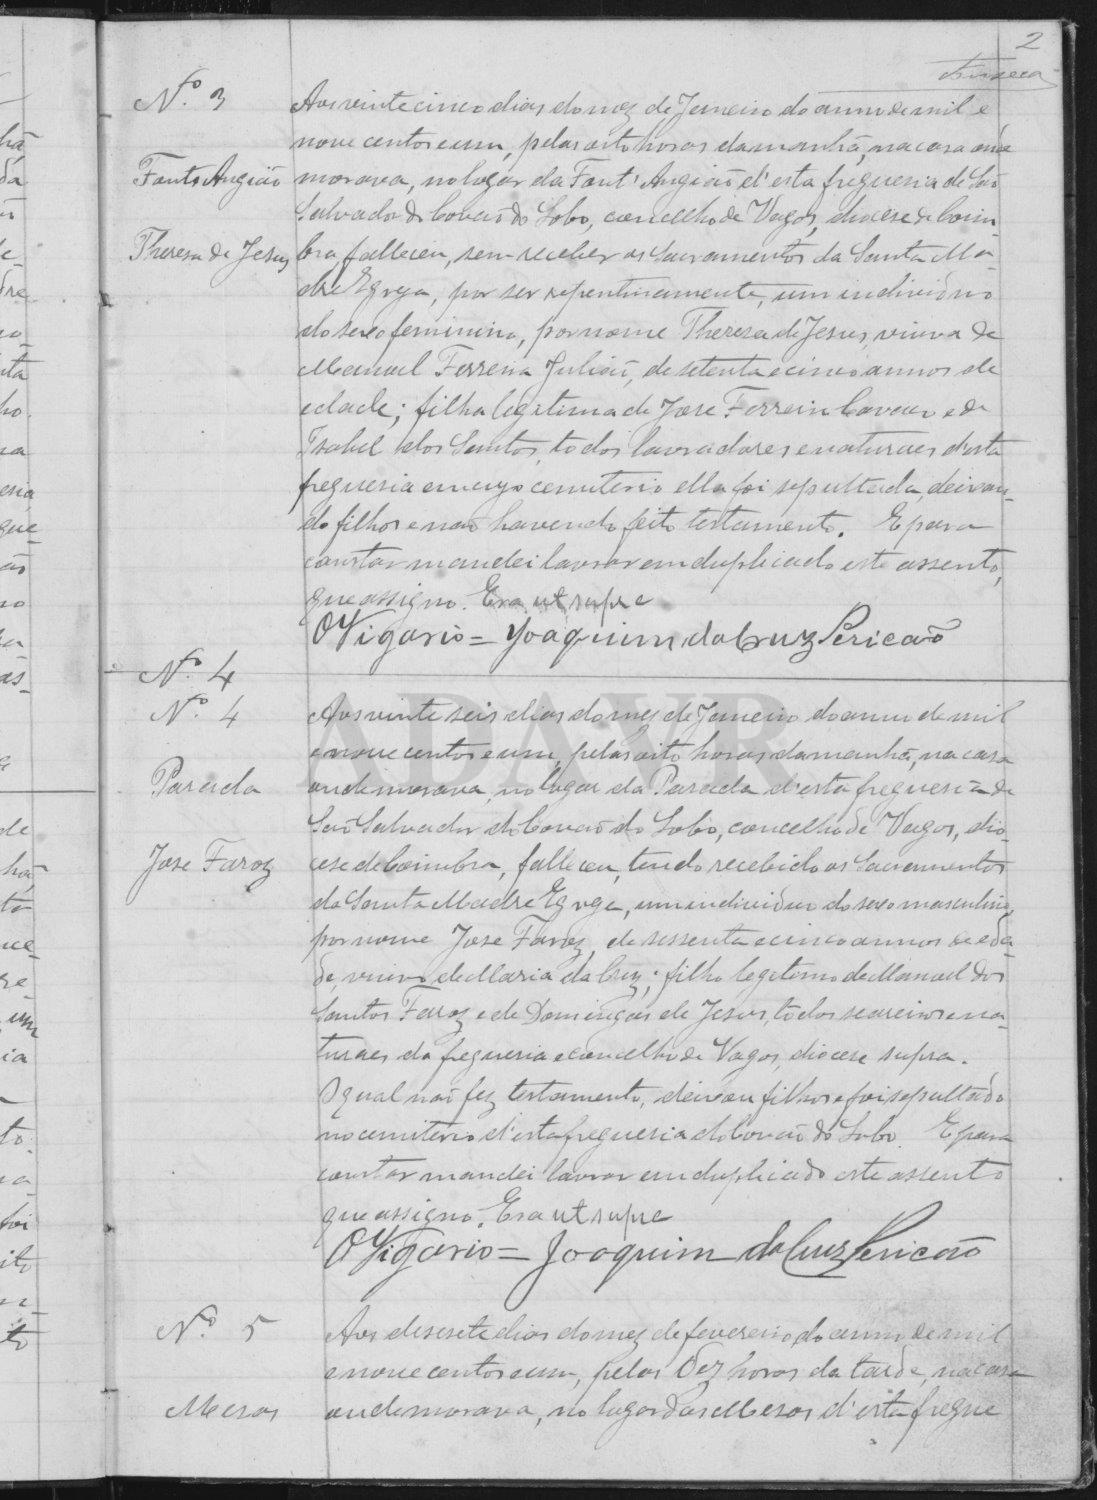 2
Fonseca
Nº 3
Font'Angião
Theresa de Jesus
Aos vinte cinco dias do mez de Janeiro do anno de mil e
nove centos e um, pelas oito horas da manhã, na casa onde
morava, no logar da Font'Angião d'esta freguesia de São
Salvador do Covão do Lobo, concelho de Vagos, diocese de Coim-
bra, falleceu, sem receber os Sacramentos da Santa Ma-
dre Egreja, por ser repentinamente, um individuo
do sexo feminino, por nome Theresa de Jesus, viuva de
Manuel Ferreira Julião, de setenta e cinco annos de
edade; filha legitima de Jose Ferreira e de
Isabel dos Santos, todos lavradores e naturaes d'esta
freguesia em cujo cemiterio ella foi sepultada, deixan-
do filhos e não havendo feito testamento. E para
constar mandei lavrar em duplicado este assento,
que assigno. Era ut supra
O Vigario = Joaquim da Cruz Pericão
Nº 4
Nº 4
Parada
Jose Faroz
Aos vinte seis dias do mez de Janeiro do anno de mil
e nove centos e um, pelas oito horas da manhã, na casa
onde morava, no logar da Parada d'esta freguesia de
São Salvador do Covão do Lobo, concelho de Vagos, dio-
cese de Coimbra, falleceu, tendo recebido os Sacramentos
da Santa Madre Egreja, um individuo do sexo masculino,
por nome Jose Faroz, de sessenta e cinco annos de eda-
de, viuvo de Maria da Cruz; filho legitimo de Manuel dos
Santos Faroz e de Domingas de Jesus, todos seareiros e na-
turaes da freguesia e concelho de Vagos, diocese supra.
O qual não fez testamento, deixou filhos e foi sepultado
no cemiterio d'esta freguesia do Covão do Lobo. E para
constar mandei lavrar em duplicado este assento
que assigno. Era ut supra
O Vigario = Joaquim da Cruz Pericão
Nº 5
Mesas
Aos desesete dias do mez de fevereiro do anno de mil
e nove centos e um, pelas dez horas da tarde, na casa
onde morava, no logar das Mesas d'esta fregue